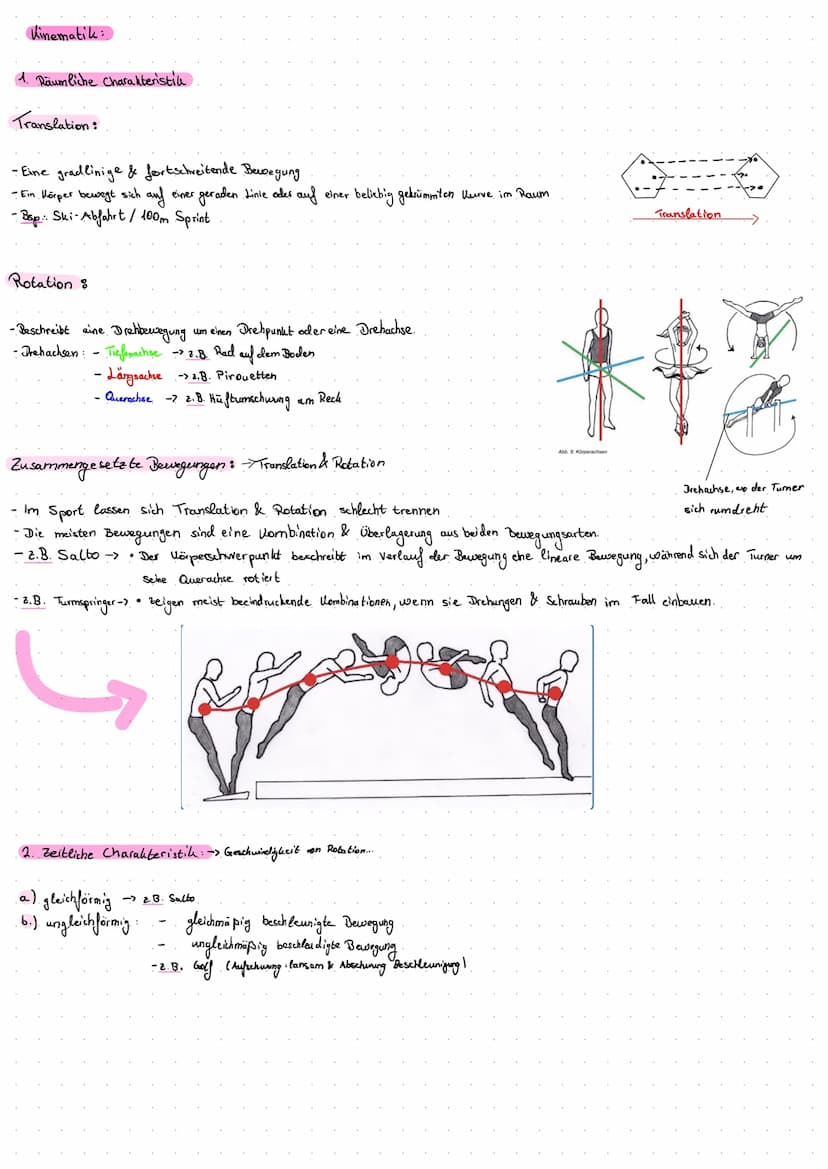 Kinematik:
1. Räumliche Charakteristik
Translation:
- Eine gradlinige & fortschreitende Bewegung
- Ein Körper bewegt sich auf einer geraden Linie oder auf einer beliebig gekrümmten Kurve im Raum
- Bsp.: Ski-Abfahrt / 100m Sprint
Translation
Rotation:
- Beschreibt eine Drehbewegung um einen Drehpunkt oder eine Drehachse
- Drehachsen: - Tiefenachse -> z.B. Rad auf dem Boden
- Längsachse -> z.B. Pirouetten
- Querachse -> z.B. Hüftumschwung am Reck
Abb. 5: Körperachsen
Drehachse, wo der Turner
sich rumdreht
Zusammengesetzte Bewegungen: -> Translation & Rotation
- Im Sport lassen sich Translation & Rotation schlecht trennen
- Die meisten Bewegungen sind eine Kombination & Überlagerung aus beiden Bewegungsarten.
- z.B. Salto -> • Der Körperschwerpunkt beschreibt im Verlauf der Bewegung eine lineare Bewegung, während sich der Turner um
seine Querachse rotiert
- z.B. Turmspringer -> • zeigen meist beeindruckende Kombinationen, wenn sie Drehungen & Schrauben im Fall einbauen.
2. Zeitliche Charakteristik: -> Geschwindigkeit von Rotation...
a) gleichförmig -> z.B. Salto
b.) ungleichförmig: - gleichmäßig beschleunigte Bewegung
- ungleichmäßig beschleudigte Bewegung
- z.B. Golf (Aufschwung: langsam & Abschwung Beschleunigung)